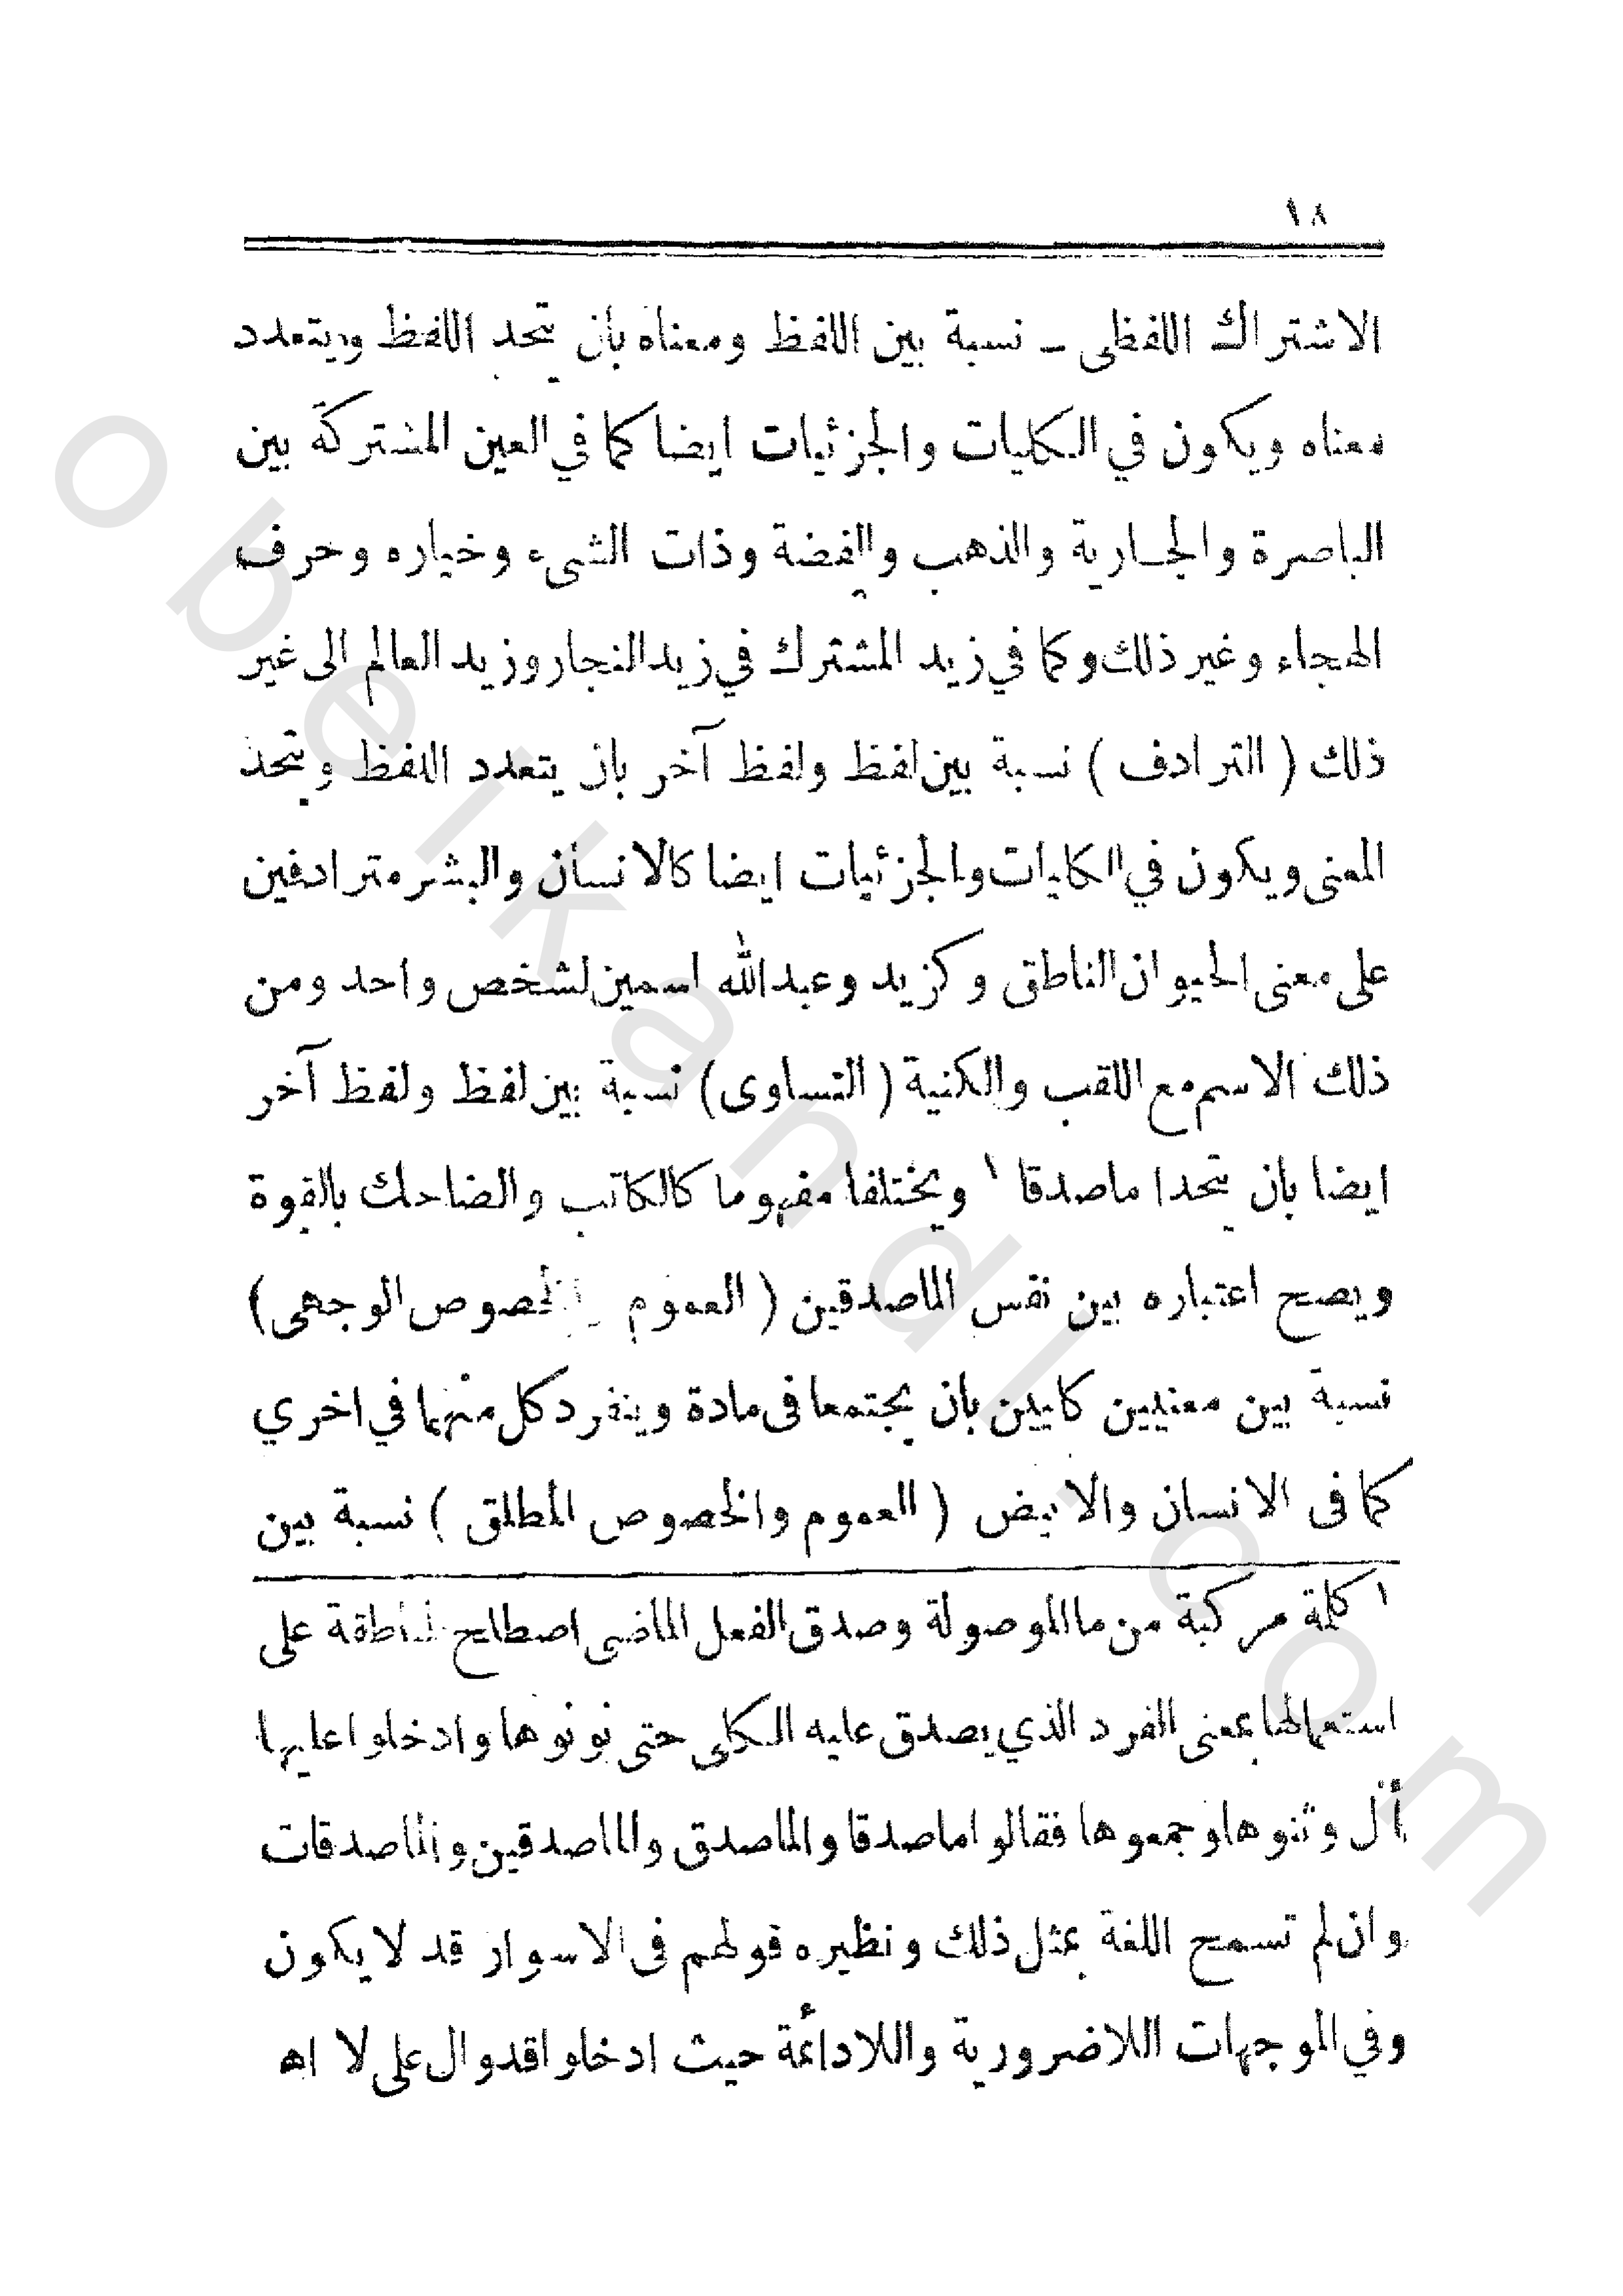 ١٨
الاشتراك اللفظى ــ نسبة بين اللفظ ومعناه بان يتحد اللفظ ويتعدد
معناه ويكون في الكليات والجزئيات ايضا كما في العين المشتركة بين
الباصرة والجارية والذهب والفضة وذات الشىء وخياره وحرف
الهجاء وغير ذلك وكما في زيد المشترك في زيد النجار وزيد العالم الى غير
ذلك ( الترادف ) نسبة بين لفظ ولفظ آخر بان يتعدد اللفظ ويتحد
المعنى ويكون في الكليات والجزئيات ايضا كالانسان والبشر مترادفين
على معنى الحيوان الناطق وكزيد وعبدالله اسمين لشخص واحد ومن
ذلك الاسم مع اللقب والكنية ( التساوى ) نسبة بين لفظ ولفظ آخر
ايضا بان يتحدا ماصدقا ١ ويختلفا مفهوما كالكاتب والضاحك بالقوة
ويصح اعتباره بين نفس الماصدقين ( العموم والخصوص الوجهى )
نسبة بين معنيين كليين بان يجتمعا فى مادة وينفرد كل منهما في اخري
كما فى الانسان والابيض ( العموم والخصوص المطلق ) نسبة بين
١ كلمة مركبة من ما الموصولة وصدق الفعل الماضى اصطلح المناطقة على
استعمالها بمعنى الفرد الذي يصدق عليه الكلى حتى نونوها وادخلوا عليها
أل وثنوها وجمعوها فقالوا ماصدقا والماصدق والماصدقين والماصدقات
وان لم تسمح اللغة بمثل ذلك ونظيره قولهم فى الاسوار قد لا يكون
وفي الموجهات اللاضرورية واللادائمة حيث ادخلوا قد وال على لا اه
obeikandl.com